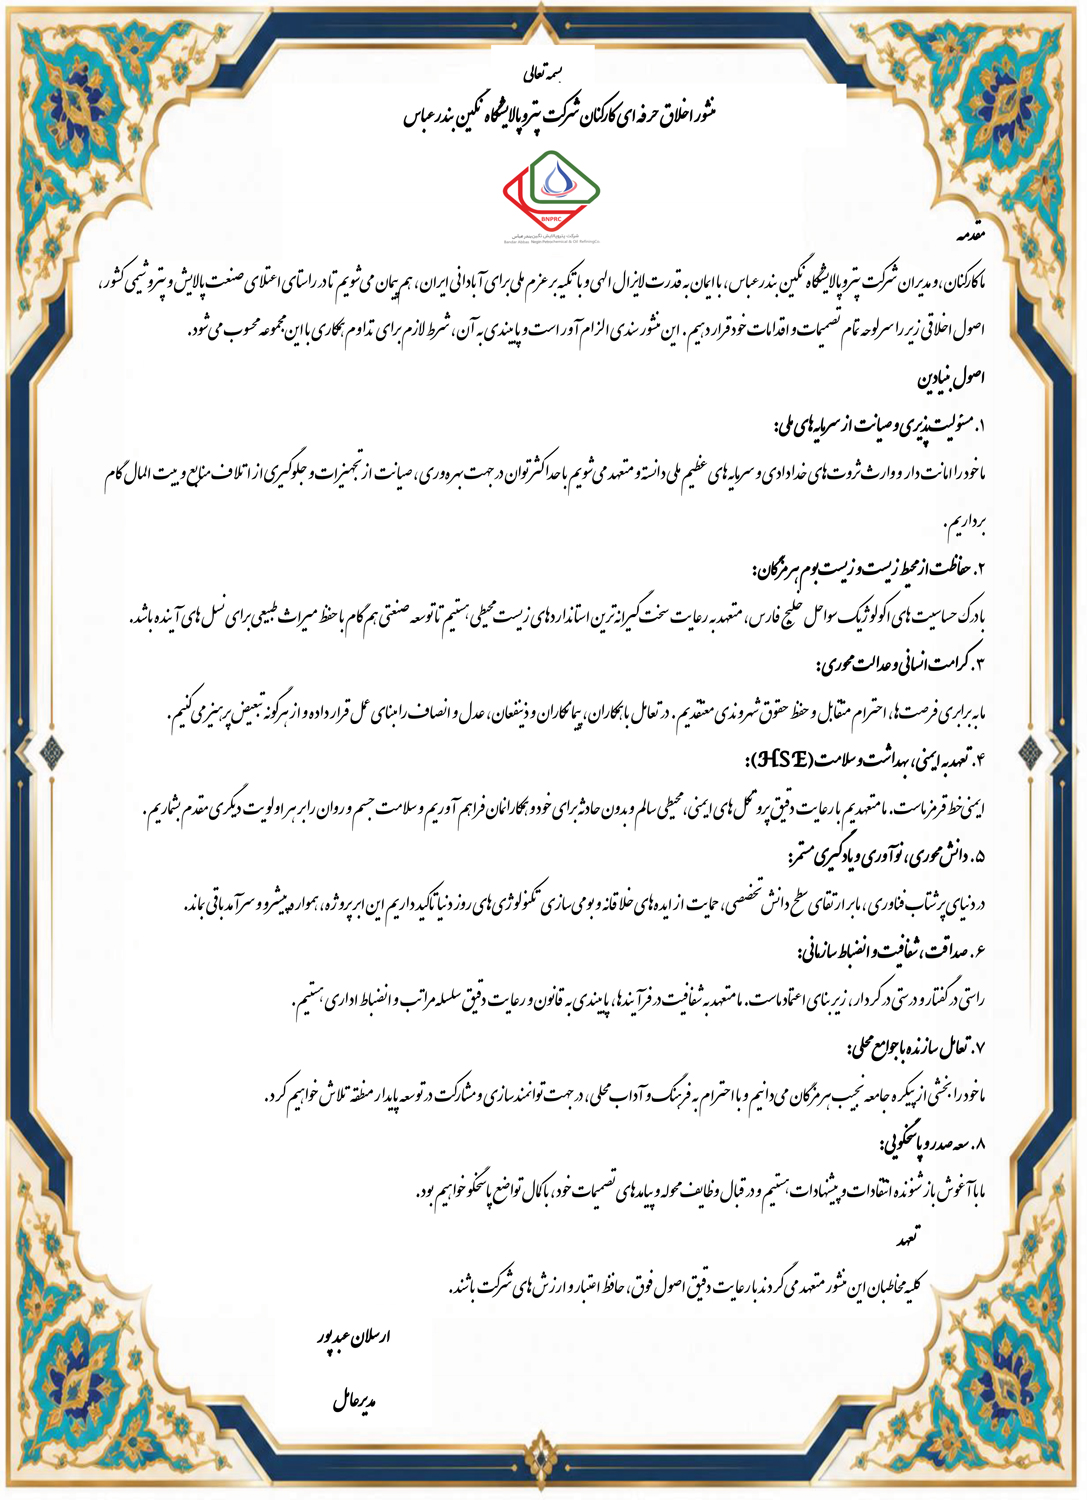 بسمه تعالی
منشور اخلاق حرفه ای کارکنان شرکت پتروپالایشگاه نگین بندرعباس
BNPRC
شرکت پتروپالایش نگین بندرعباس
Bandar Abbas Negin Petrochemical & Oil Refining Co
مقدمه
ما کارکنان، و مدیران شرکت پتروپالایشگاه نگین بندرعباس، با ایمان به قدرت لایزال الهی و با تکیه بر عزم ملی برای آبادانی ایران، هم پیمان می‌شویم تا در راستای اعتلای صنعت پالایش و پتروشیمی کشور،
اصول اخلاقی زیر را سرلوحه تمام تصمیمات و اقدامات خود قرار دهیم. این منشور سندی الزام آور است و پایبندی به آن، شرط لازم برای تداوم همکاری با این مجموعه محسوب می‌شود.
اصول بنیادین
۱. مسئولیت‌پذیری و صیانت از سرمایه‌های ملی:
ما خود را امانت دار و وارث ثروت‌های خدادادی و سرمایه‌های عظیم ملی دانسته و متعهد می‌شویم با حداکثر توان در جهت بهره‌وری، صیانت از تجهیزات و جلوگیری از اتلاف منابع و بیت المال گام
برداریم.
۲. حفاظت از محیط زیست و زیست‌بوم هرمزگان:
با درک حساسیت‌های اکولوژیک سواحل خلیج فارس، متعهد به رعایت سخت‌گیرانه‌ترین استانداردهای زیست محیطی هستیم تا توسعه صنعتی هم گام با حفظ میراث طبیعی برای نسل‌های آینده باشد.
۳. کرامت انسانی و عدالت محوری:
ما به برابری فرصت‌ها، احترام متقابل و حفظ حقوق شهروندی معتقدیم. در تعامل با همکاران، پیمانکاران و ذینفعان، عدل و انصاف را مبنای عمل قرار داده و از هرگونه تبعیض پرهیز می‌کنیم.
۴. تعهد به ایمنی، بهداشت و سلامت (HSE):
ایمنی خط قرمز ماست. ما متعهدیم با رعایت دقیق پروتکل‌های ایمنی، محیطی سالم و بدون حادثه برای خود و همکارانمان فراهم آوریم و سلامت جسم و روان را بر هر اولویت دیگری مقدم بشماریم.
۵. دانش محوری، نوآوری و یادگیری مستمر:
در دنیای پرشتاب فناوری، ما بر ارتقای سطح دانش تخصصی، حمایت از ایده‌های خلاقانه و بومی‌سازی تکنولوژی‌های روز دنیا تاکید داریم این ابر پروژه، همواره پیشرو و سرآمد باقی بماند.
۶. صداقت، شفافیت و انضباط سازمانی:
راستی در گفتار و درستی در کردار، زیربنای اعتماد ماست. ما متعهد به شفافیت در فرآیندها، پایبندی به قانون و رعایت دقیق سلسله مراتب و انضباط اداری هستیم.
۷. تعامل سازنده با جوامع محلی:
ما خود را بخشی از پیکره جامعه نجیب هرمزگان می‌دانیم و با احترام به فرهنگ و آداب محلی، در جهت توانمندسازی و مشارکت در توسعه پایدار منطقه تلاش خواهیم کرد.
۸. سعه صدر و پاسخگویی:
ما با آغوش باز شنونده انتقادات و پیشنهادات هستیم و در قبال وظایف محوله و پیامدهای تصمیمات خود، با کمال تواضع پاسخگو خواهیم بود.
تعهد
کلیه مخاطبان این منشور متعهد می‌گردند با رعایت دقیق اصول فوق، حافظ اعتبار و ارزش‌های شرکت باشند.
ارسلان عبدپور
مدیرعامل